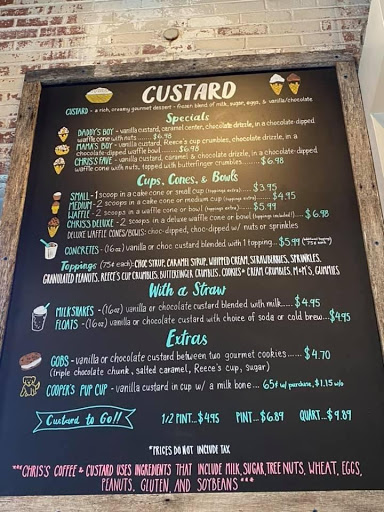 CUSTARD
CUSTARD - a rich, creamy gourmet dessert - frozen blend of milk, sugar, eggs, & vanilla/chocolate
Specials
DADDY'S BOY - vanilla custard, caramel center, chocolate drizzle, in a chocolate-dipped
waffle cone with nuts ...... $6.98
MAMA'S BOY - vanilla custard, Reece's cup crumbles, chocolate drizzle, in a
chocolate-dipped waffle bowl ...... $6.98
CHRIS'S FAVE - vanilla custard, caramel & chocolate drizzle, in a chocolate-dipped
waffle cone with nuts, topped with butterfinger crumbles ...... $6.98
Cups, Cones, & Bowls
SMALL - 1 scoop in a cake cone or small cup (toppings extra) ...... $3.95
MEDIUM - 2 scoops in a cake cone or medium cup (toppings extra) ...... $4.95
WAFFLE - 2 scoops in a waffle cone or bowl (toppings extra) ...... $5.99
CHRIS'S DELUXE - 2 scoops in a deluxe waffle cone or bowl (toppings included) ...... $6.98
DELUXE WAFFLE CONES/BOWLS: choc-dipped, choc-dipped w/ nuts or sprinkles
CONCRETES - (16oz) vanilla or choc custard blended with 1 topping... $5.99 (additional toppings 75¢ each)
Toppings (75¢ each): CHOC SYRUP, CARAMEL SYRUP, WHIPPED CREAM, STRAWBERRIES, SPRINKLES,
GRANULATED PEANUTS, REECE'S CUP CRUMBLES, BUTTERFINGER CRUMBLES, COOKIES & CREAM CRUMBLES, M&M'S, GUMMIES
With a Straw
MILKSHAKES - (16oz) vanilla or chocolate custard blended with milk...... $4.95
FLOATS - (16oz) vanilla or chocolate custard with choice of soda or cold brew...$4.95
Extras
GOBS - vanilla or chocolate custard between two gourmet cookies...... $4.70
(triple chocolate chunk, salted caramel, Reece's cup, sugar)
COOPER'S PUP CUP - vanilla custard in cup w/ a milk bone ... 65¢ w/ purchase, $1.15 w/o
Custard to Go!!
1/2 PINT...$4.95 PINT...$6.89 QUART...$9.89
*PRICES DO NOT INCLUDE TAX
***CHRIS'S COFFEE & CUSTARD USES INGREDIENTS THAT INCLUDE MILK, SUGAR, TREE NUTS, WHEAT, EGGS,
PEANUTS, GLUTEN, AND SOYBEANS ***